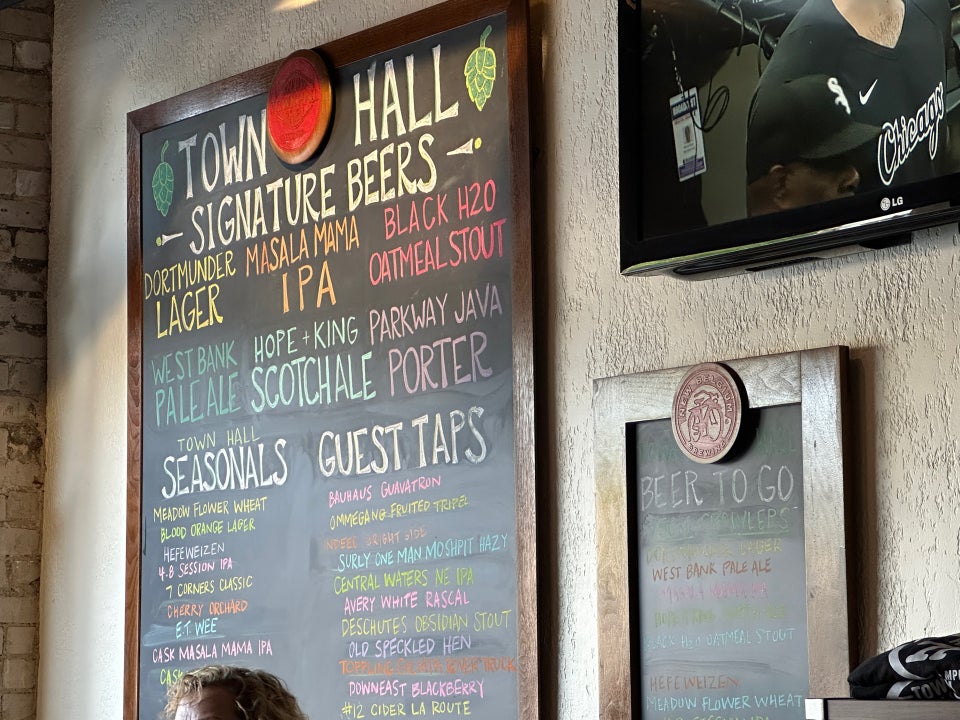 TOWN HALL
SIGNATURE BEERS
DORTMUNDER
LAGER
MASALA MAMA
IPA
BLACK H2O
OATMEAL STOUT
WEST BANK
PALE ALE
HOPE + KING
SCOTCH ALE
PARKWAY JAVA
PORTER
TOWN HALL
SEASONALS
MEADOW FLOWER WHEAT
BLOOD ORANGE LAGER
HEFEWEIZEN
4.8 SESSION IPA
7 CORNERS CLASSIC
CHERRY ORCHARD
E.T. WEE
CASK MASALA MAMA IPA
GUEST TAPS
BAUHAUS GUAVATRON
OMMEGANG FRUITED TRIPEL
INDEED BRIGHT SIDE
SURLY ONE MAN MOSHPIT HAZY
CENTRAL WATERS NE IPA
AVERY WHITE RASCAL
DESCHUTES OBSIDIAN STOUT
OLD SPECKLED HEN
TOPPLING
DOWNEAST BLACKBERRY
#12 CIDER LA ROUTE
Chicago
LG
NEW BELGIUM
BREWING
BEER TO GO
CROWLERS
WEST BANK PALE ALE
BLACK H2O OATMEAL STOUT
HEFEWEIZEN
MEADOW FLOWER WHEAT